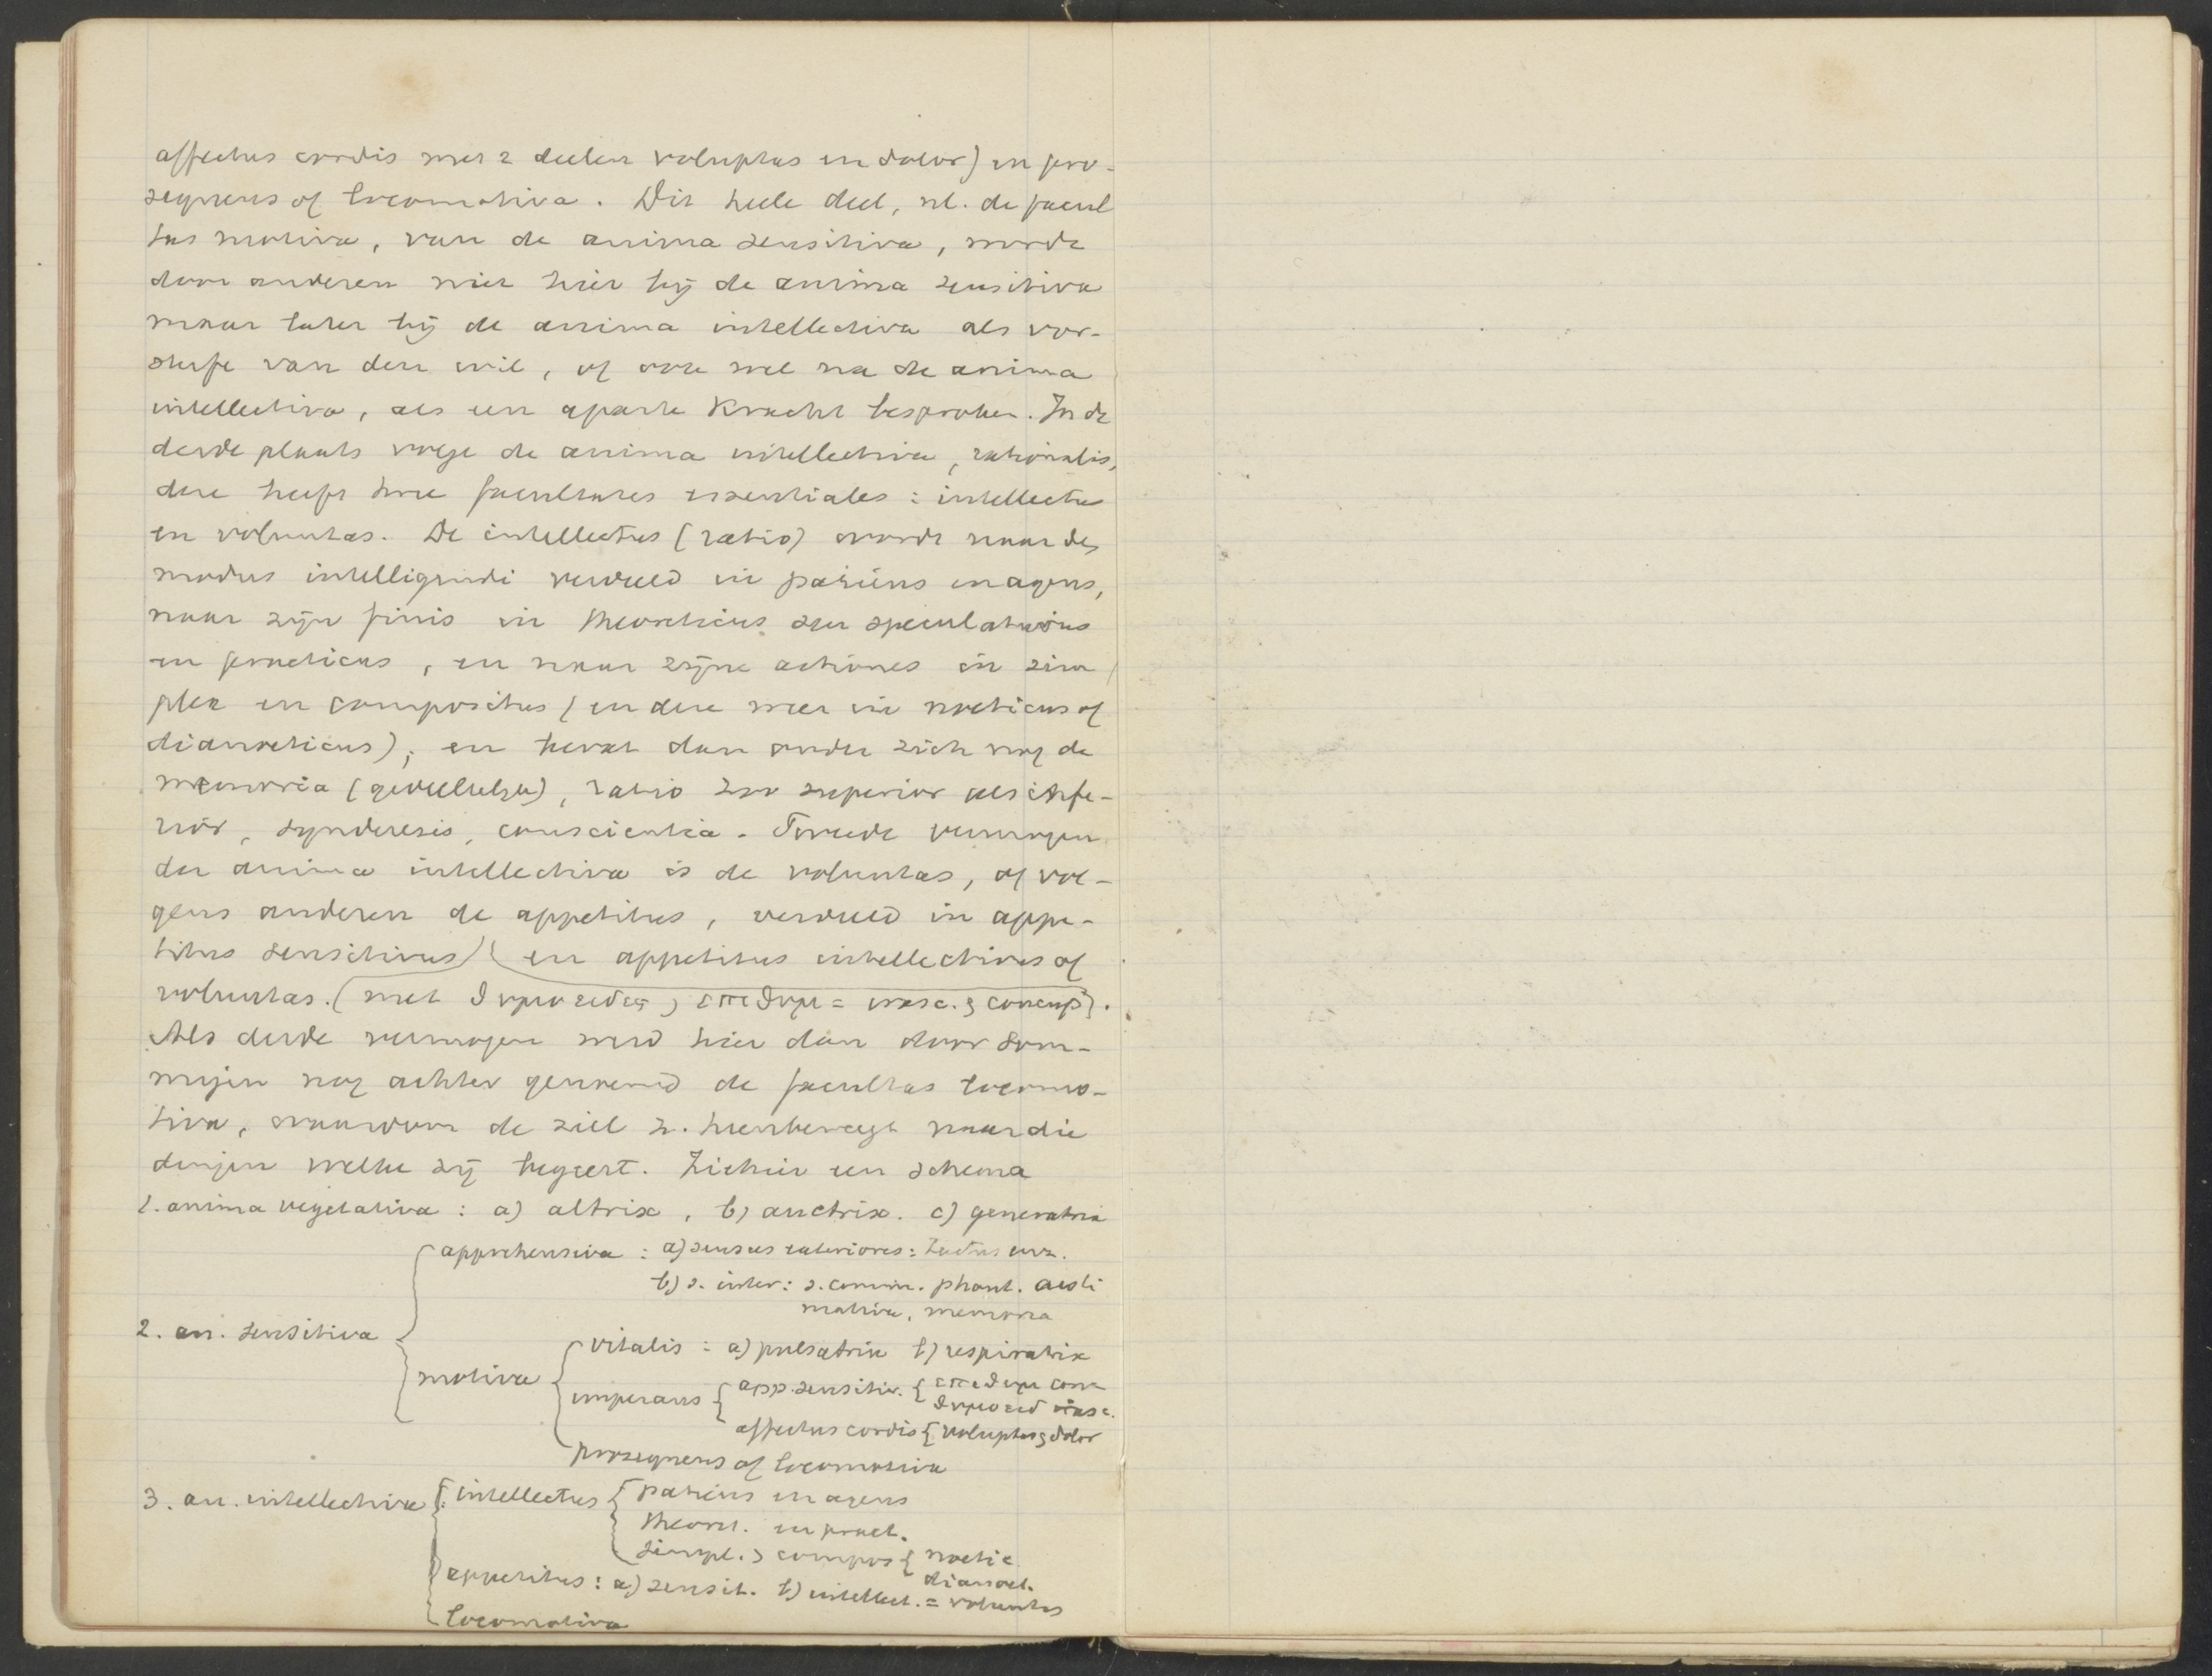 affectus cordis met 2 deelen voluptas en dolor) en pro-
sequens of locomotiva. Dit heele deel, nl. de facul
tas motiva, van de anima sensitiva, wordt
door anderen niet hier bij de anima sensitiva
maar later bij de anima intellectiva als voor-
stufe van den wil, of ook wel na de anima
intellectiva, als een aparte kracht besproken. In de
derde plaats volgt de anima intellectiva, rationalis,
deze heeft twee facultates essentiales: intellectus
en voluntas. De intellectus (ratio) wordt naar de
modus intelligendi verdeeld in patiens en agens,
naar zijn finis in theoreticus seu speculativus
en practicus, en naar zijne actiones in sim
plex en compositus (en deze weer in noeticus of
dianoeticus); en bevat dan onder zich nog de
memoria (gedeeltelijk), ratio zoo superior als infe-
rior, synderesis, conscientia. Tweede vermogen
der anima intellectiva is de voluntas, of vol-
gens anderen de appetitus, verdeeld in appe-
titus sensitivus) (en appetitus intellectivus of
voluntas. (met θυμοειδες, επιθυμ = irasc. & concup).
Als derde vermogen werd hier dan door som-
migen nog achter genoemd de facultas locomo-
tiva, waardoor de ziel z. heenbeweegt naar die
dingen welke zij begeert. Ziehier een schema
1. anima vegetativa: a) altrix, b) auctrix. c) generatrix
apprehensiva: a) sensus exteriores: tactus enz.
b) s. inter: s. comm. phant. aesti
mativa, memoria
2. an. sensitiva
vitalis: a) pulsatrix b) respiratrix
motiva
imperans { app. sensitiv. { επιθυμ conc
θυμοειδ irasc.
affectus cordis { voluptas & dolor
prosequens of locomotiva
3. an. intellectiva { intellectus { patiens en agens
theoret. en pract.
simpl. & compos { noetic
dianoet.
appetitus: a) sensit. b) intellect. = voluntas
locomotiva